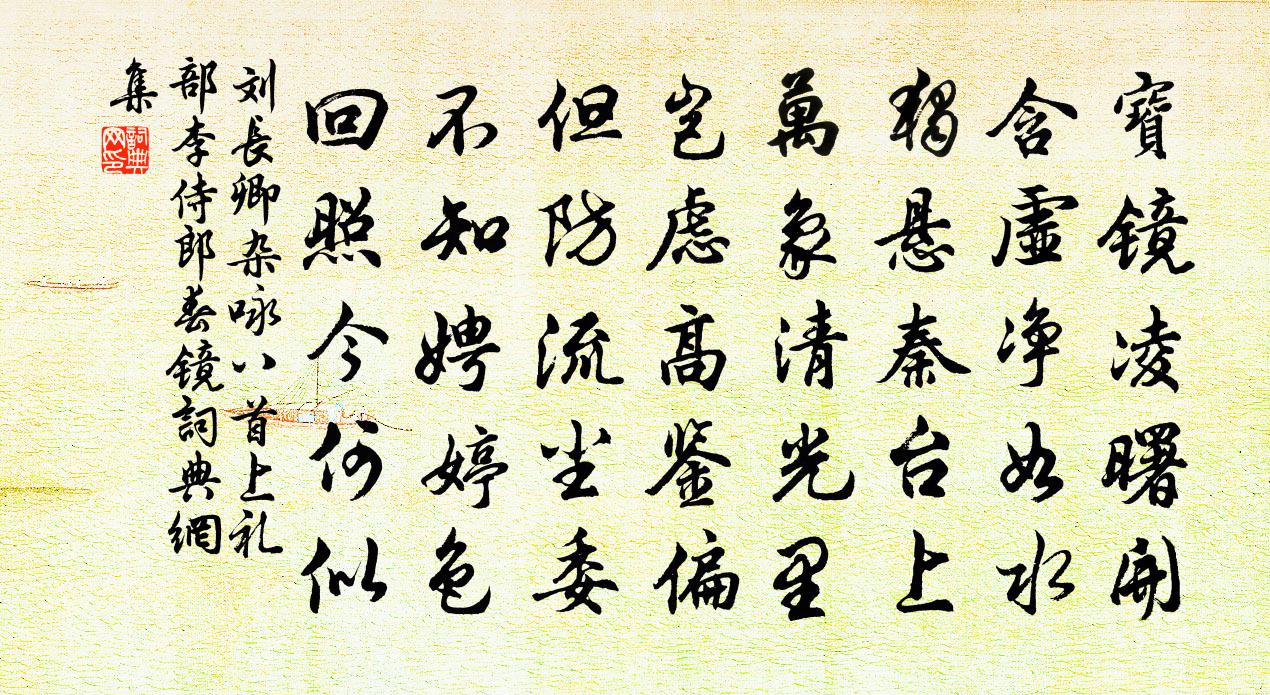 寶镜凌曙開
含虛净如水
獨悬秦台上
萬象清光里
岂虑高鉴偏
但防流尘委
不知娉婷色
回照今何似
刘長卿杂咏八首上礼
部李侍郎春镜詞典網
集
詞典网印